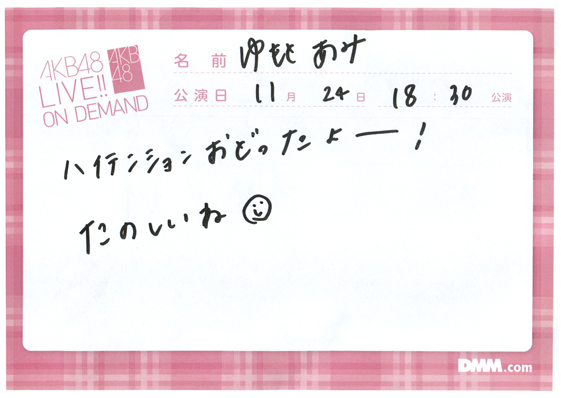 AKB48
LIVE!!
ON DEMAND
AKB
48
名前 ゆもと あみ
公演日 11月 24日 18:30 公演
ハイテンション おどったよー!
たのしいね
DMM.com